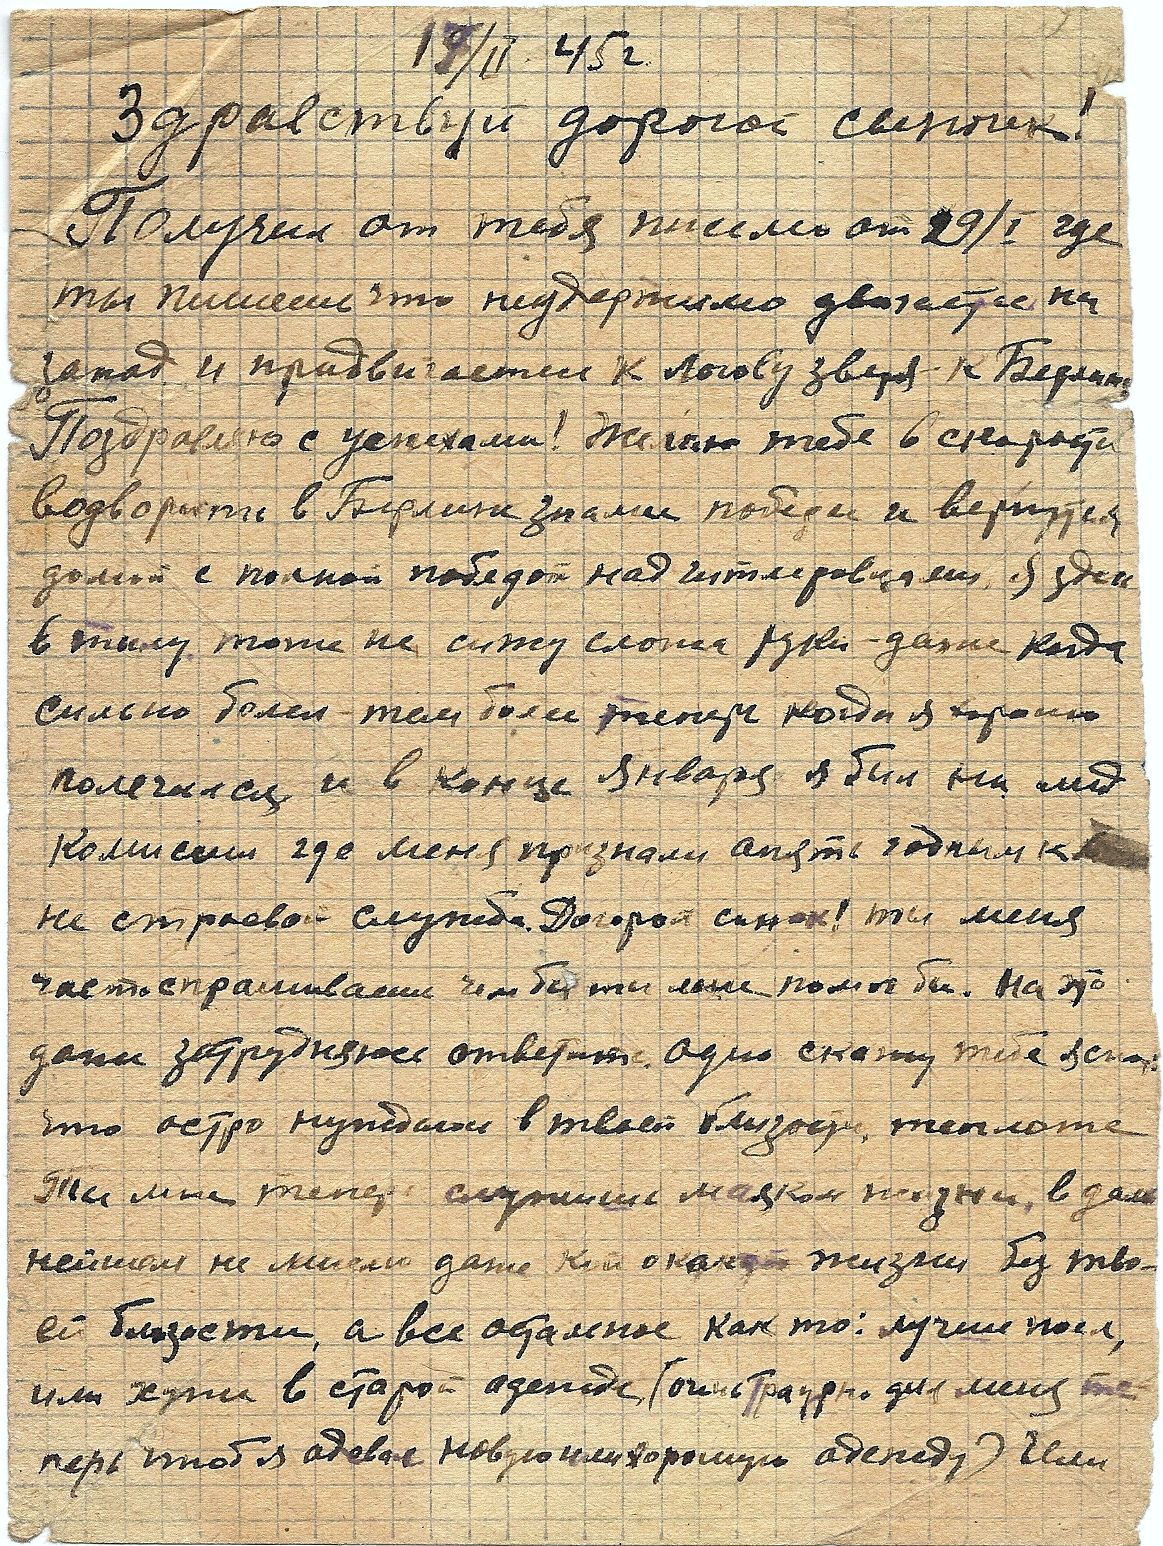 19/II 45 г
Здравствуй дорогой сыночек!
Получил от тебя письмо от 29/I где
ты пишеш что неудержимо движетесь на
запад и придвигаетесь к логову зверя - к Берлину
Поздравляю с успехами! Желаю тебе в скорости
водворить в Берлине знамя победы и вернутся
домой с полной победой над гитлеровцами. Я здесь
в тылу тоже не сижу сложа руки - даже когда
сильно болел - тем более теперь когда я хорошо
полечился и в конце января я был на мед
комиссии где меня признали опять годным к
не строевой службе. Дорогой сынок! ты меня
часто спрашиваеш чем бы ты мне помог бы. На это
даже затрудняюсь ответить. Одно скажу тебе ясно:
что остро нуждаюсь в твоей близости, теплоте
Ты мне теперь служишь маяком жизни, в даль
нейшем не мыслю даже жизни без тво-
ей близости, а все остальное как то: лучше поел,
или хуже в старой одежде, (очень траурно для меня те-
перь чтоб я одевал новую или хорошую одежду) Если